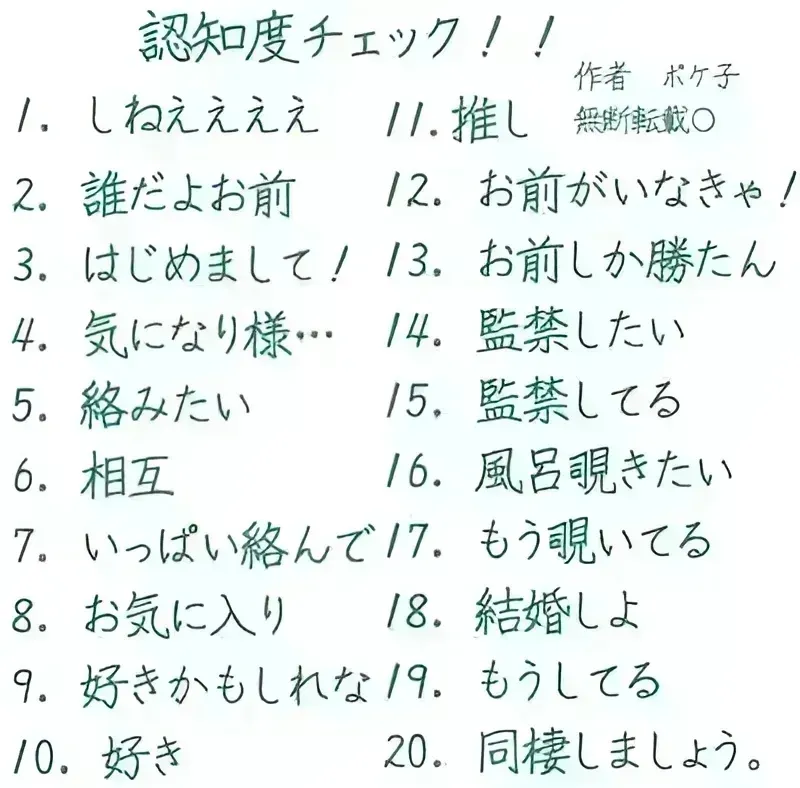 認知度チェック！！
作者　ポケ子
無断転載〇
1. しねえええええ
2. 誰だよお前
3. はじめまして！
4. 気になり様…
5. 絡みたい
6. 相互
7. いっぱい絡んで
8. お気に入り
9. 好きかもしれな
10. 好き
11. 推し
12. お前がいなきゃ！
13. お前しか勝たん
14. 監禁したい
15. 監禁してる
16. 風呂覗きたい
17. もう覗いてる
18. 結婚しよ
19. もうしてる
20. 同棲しましょう。